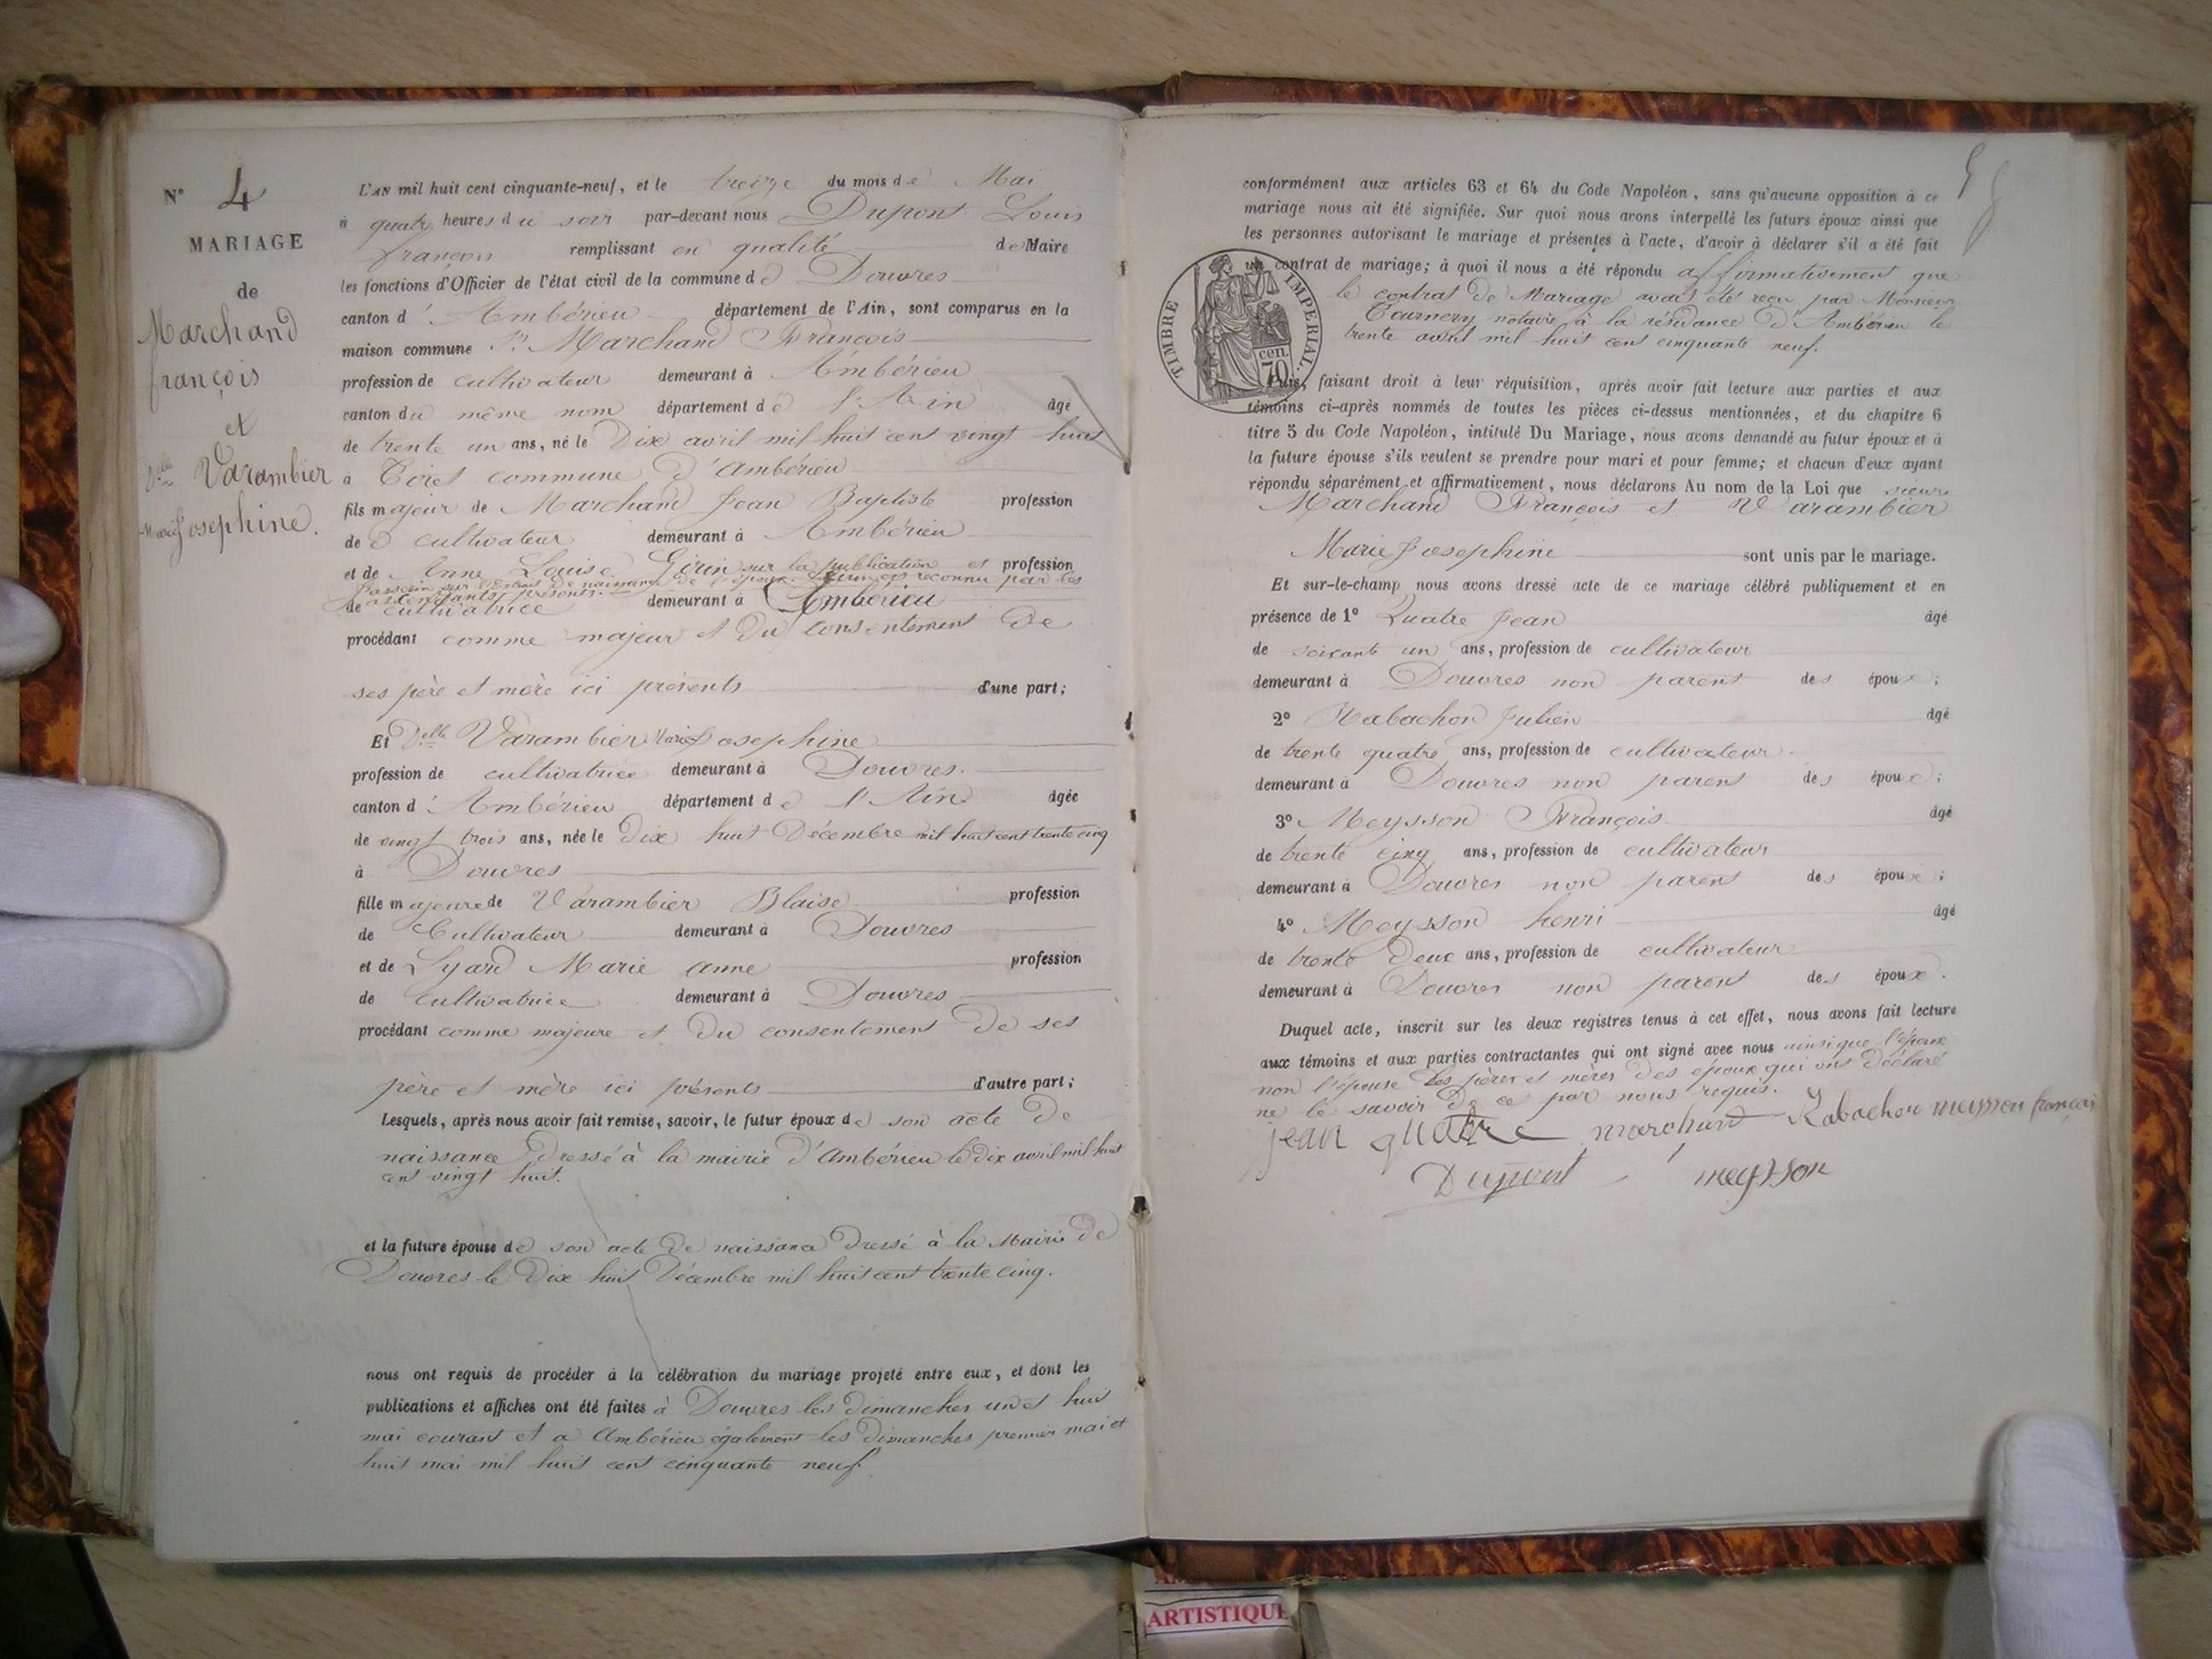 N° 4
MARIAGE
de
Marchand
françois
et
Delle Varambier
Marie Josephine.
L'AN mil huit cent cinquante-neuf, et le treize du mois de Mai
à quatre heures du soir par-devant nous Dupont Louis
françois remplissant en qualité de Maire
les fonctions d'Officier de l'état civil de la commune de Douvres
canton d'Ambérieu département de l'Ain, sont comparus en la
maison commune Sr Marchand François
profession de cultivateur demeurant à Ambérieu
canton du même nom département de l'Ain âgé
de trente un ans, né le Dix avril mil huit cent vingt huit
à Tiret commune d'Ambérieu
fils majeur de Marchand Jean Baptiste profession
de cultivateur demeurant à Ambérieu
et de Anne Louise Gérin sur la publication et profession
sur l'Extrait de naissance de l'époux reconnu par les
ascendants présents.
de cultivatrice demeurant à Ambérieu
procédant comme majeur et du consentement de
ses père et mère ici présents d'une part;
Et Delle Varambier Marie Josephine
profession de cultivatrice demeurant à Douvres.
canton d'Ambérieu département de l'Ain âgée
de vingt trois ans, née le Dix huit Décembre mil huit cent trente cinq
à Douvres
fille majeure de Varambier Blaise profession
de Cultivateur demeurant à Douvres
et de Lyard Marie anne profession
de cultivatrice demeurant à Douvres
procédant comme majeure et du consentement de ses
père et mère ici présents d'autre part;
Lesquels, après nous avoir fait remise, savoir, le futur époux de son acte de
naissance dressé à la mairie d'Ambérieu le dix avril mil huit
cent vingt huit.
et la future épouse de son acte de naissance dressé à la Mairie de
Douvres le Dix huit Décembre mil huit cent trente cinq.
nous ont requis de procéder à la célébration du mariage projeté entre eux, et dont les
publications et affiches ont été faites à Douvres les dimanches un et huit
mai courant et a Ambérieu également les dimanches premier mai et
huit mai mil huit cent cinquante neuf.
conformément aux articles 63 et 64 du Code Napoléon, sans qu'aucune opposition à ce
mariage nous ait été signifiée. Sur quoi nous avons interpellé les futurs époux ainsi que
les personnes autorisant le mariage et présentes à l'acte, d'avoir à déclarer s'il a été fait
un contrat de mariage; à quoi il nous a été répondu affirmativement que
le contrat de Mariage avait été reçu par Monsieur
Tournery notaire à la résidance d'Ambérieu le
trente avril mil huit cent cinquante neuf.
TIMBRE IMPERIAL.
cen.
70
Puis, faisant droit à leur réquisition, après avoir fait lecture aux parties et aux
témoins ci-après nommés de toutes les pièces ci-dessus mentionnées, et du chapitre 6
titre 5 du Code Napoléon, intitulé Du Mariage, nous avons demandé au futur époux et à
la future épouse s'ils veulent se prendre pour mari et pour femme; et chacun d'eux ayant
répondu séparément et affirmativement, nous déclarons Au nom de la Loi que sieur
Marchand François et Varambier
Marie Josephine sont unis par le mariage.
Et sur-le-champ nous avons dressé acte de ce mariage célébré publiquement et en
présence de 1° Quatre Jean âgé
de soixante un ans, profession de cultivateur
demeurant à Douvres non parent des époux;
2° Rabachon Julien âgé
de trente quatre ans, profession de cultivateur
demeurant à Douvres non parent des époux;
3° Meysson François âgé
de trente cinq ans, profession de cultivateur
demeurant à Douvres non parent des époux;
4° Meysson henri âgé
de trente deux ans, profession de cultivateur
demeurant à Douvres non parent des époux.
Duquel acte, inscrit sur les deux registres tenus à cet effet, nous avons fait lecture
aux témoins et aux parties contractantes qui ont signé avec nous ainsi que l'époux
non l'épouse les pères et mères des époux qui ont déclaré
ne le savoir de ce par nous requis.
jean quatre marchand Rabachon meysson françois
Dupont meysson
ARTISTIQUE